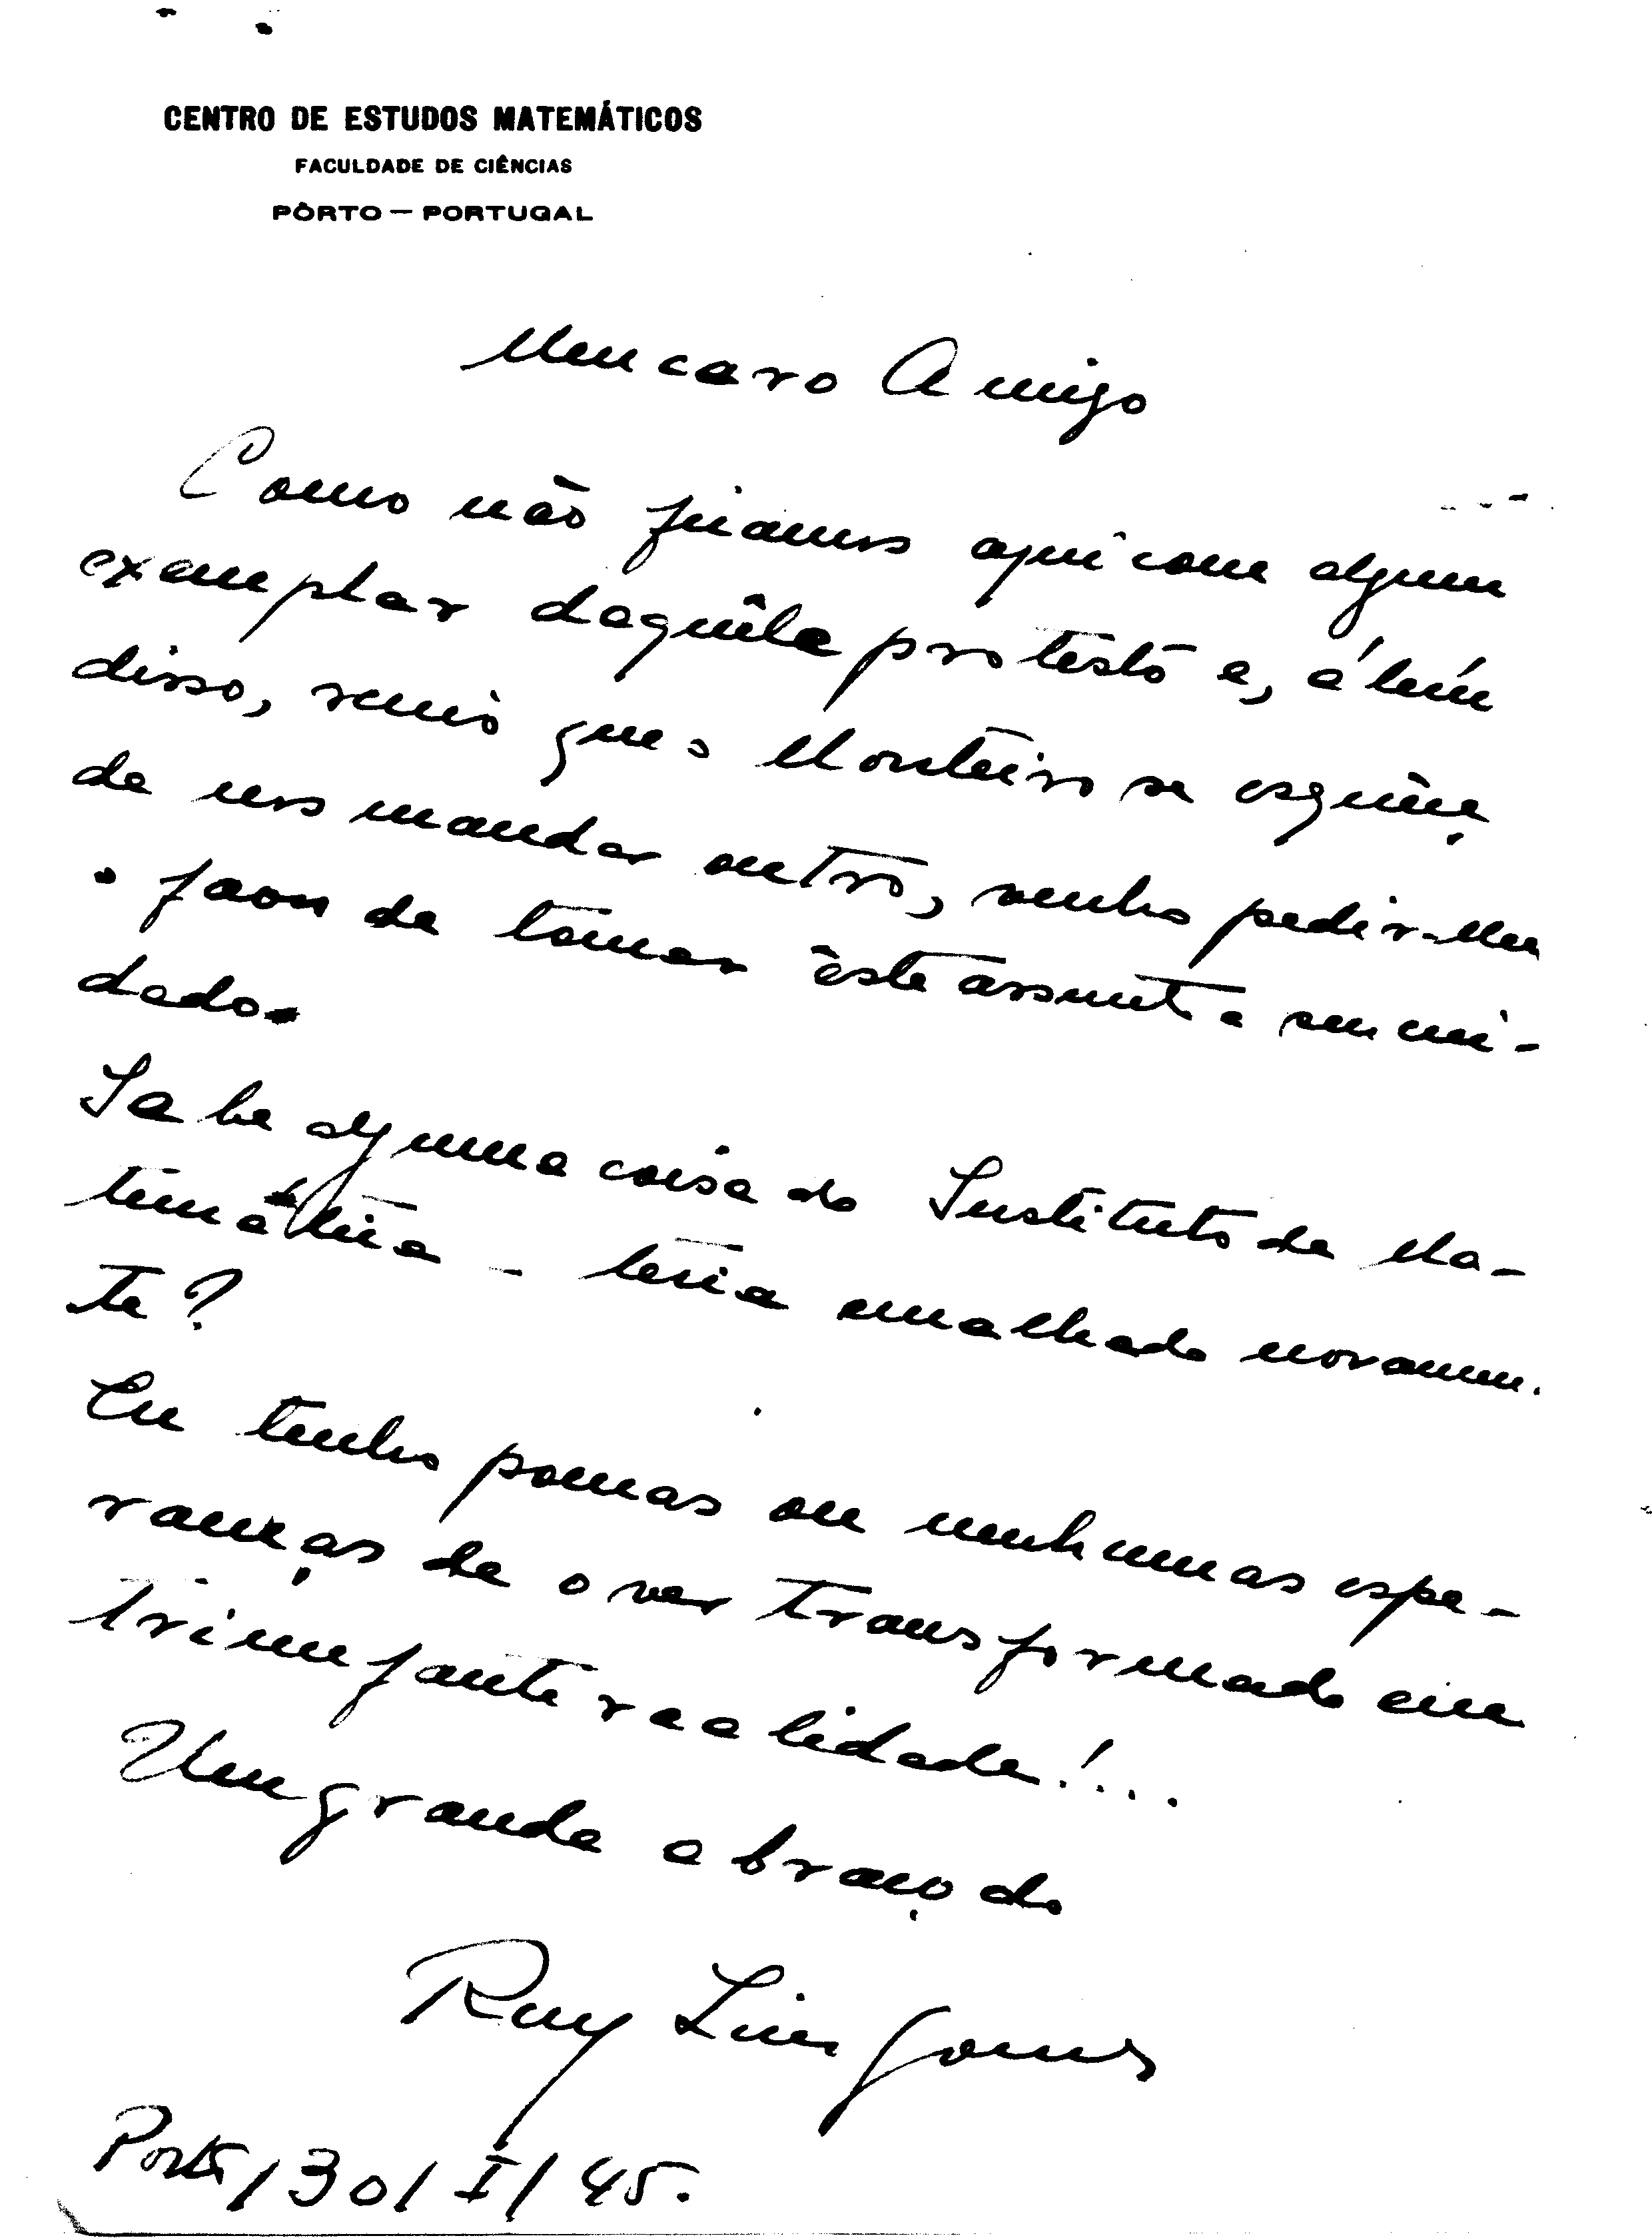 CENTRO DE ESTUDOS MATEMÁTICOS
FACULDADE DE CIÊNCIAS
PÔRTO — PORTUGAL
Meu caro Amigo
Como não ficamos aqui com algum
exemplar daquêle protesto e, além
disso, receio que o Monteiro se esquêça
de nos mandar outro, venho pedir-lhe
o favor de tomar êste assunto a seu cui-
dado.
Sabe alguma coisa do Instituto de Ma-
temática – teria encalhado novamen-
te?
Eu tenho poucas ou nenhumas espe-
ranças de o ver transformado em
triunfante realidade!...
Um grande abraço do
Ruy Luis Gomes
Porto/30/I/45.